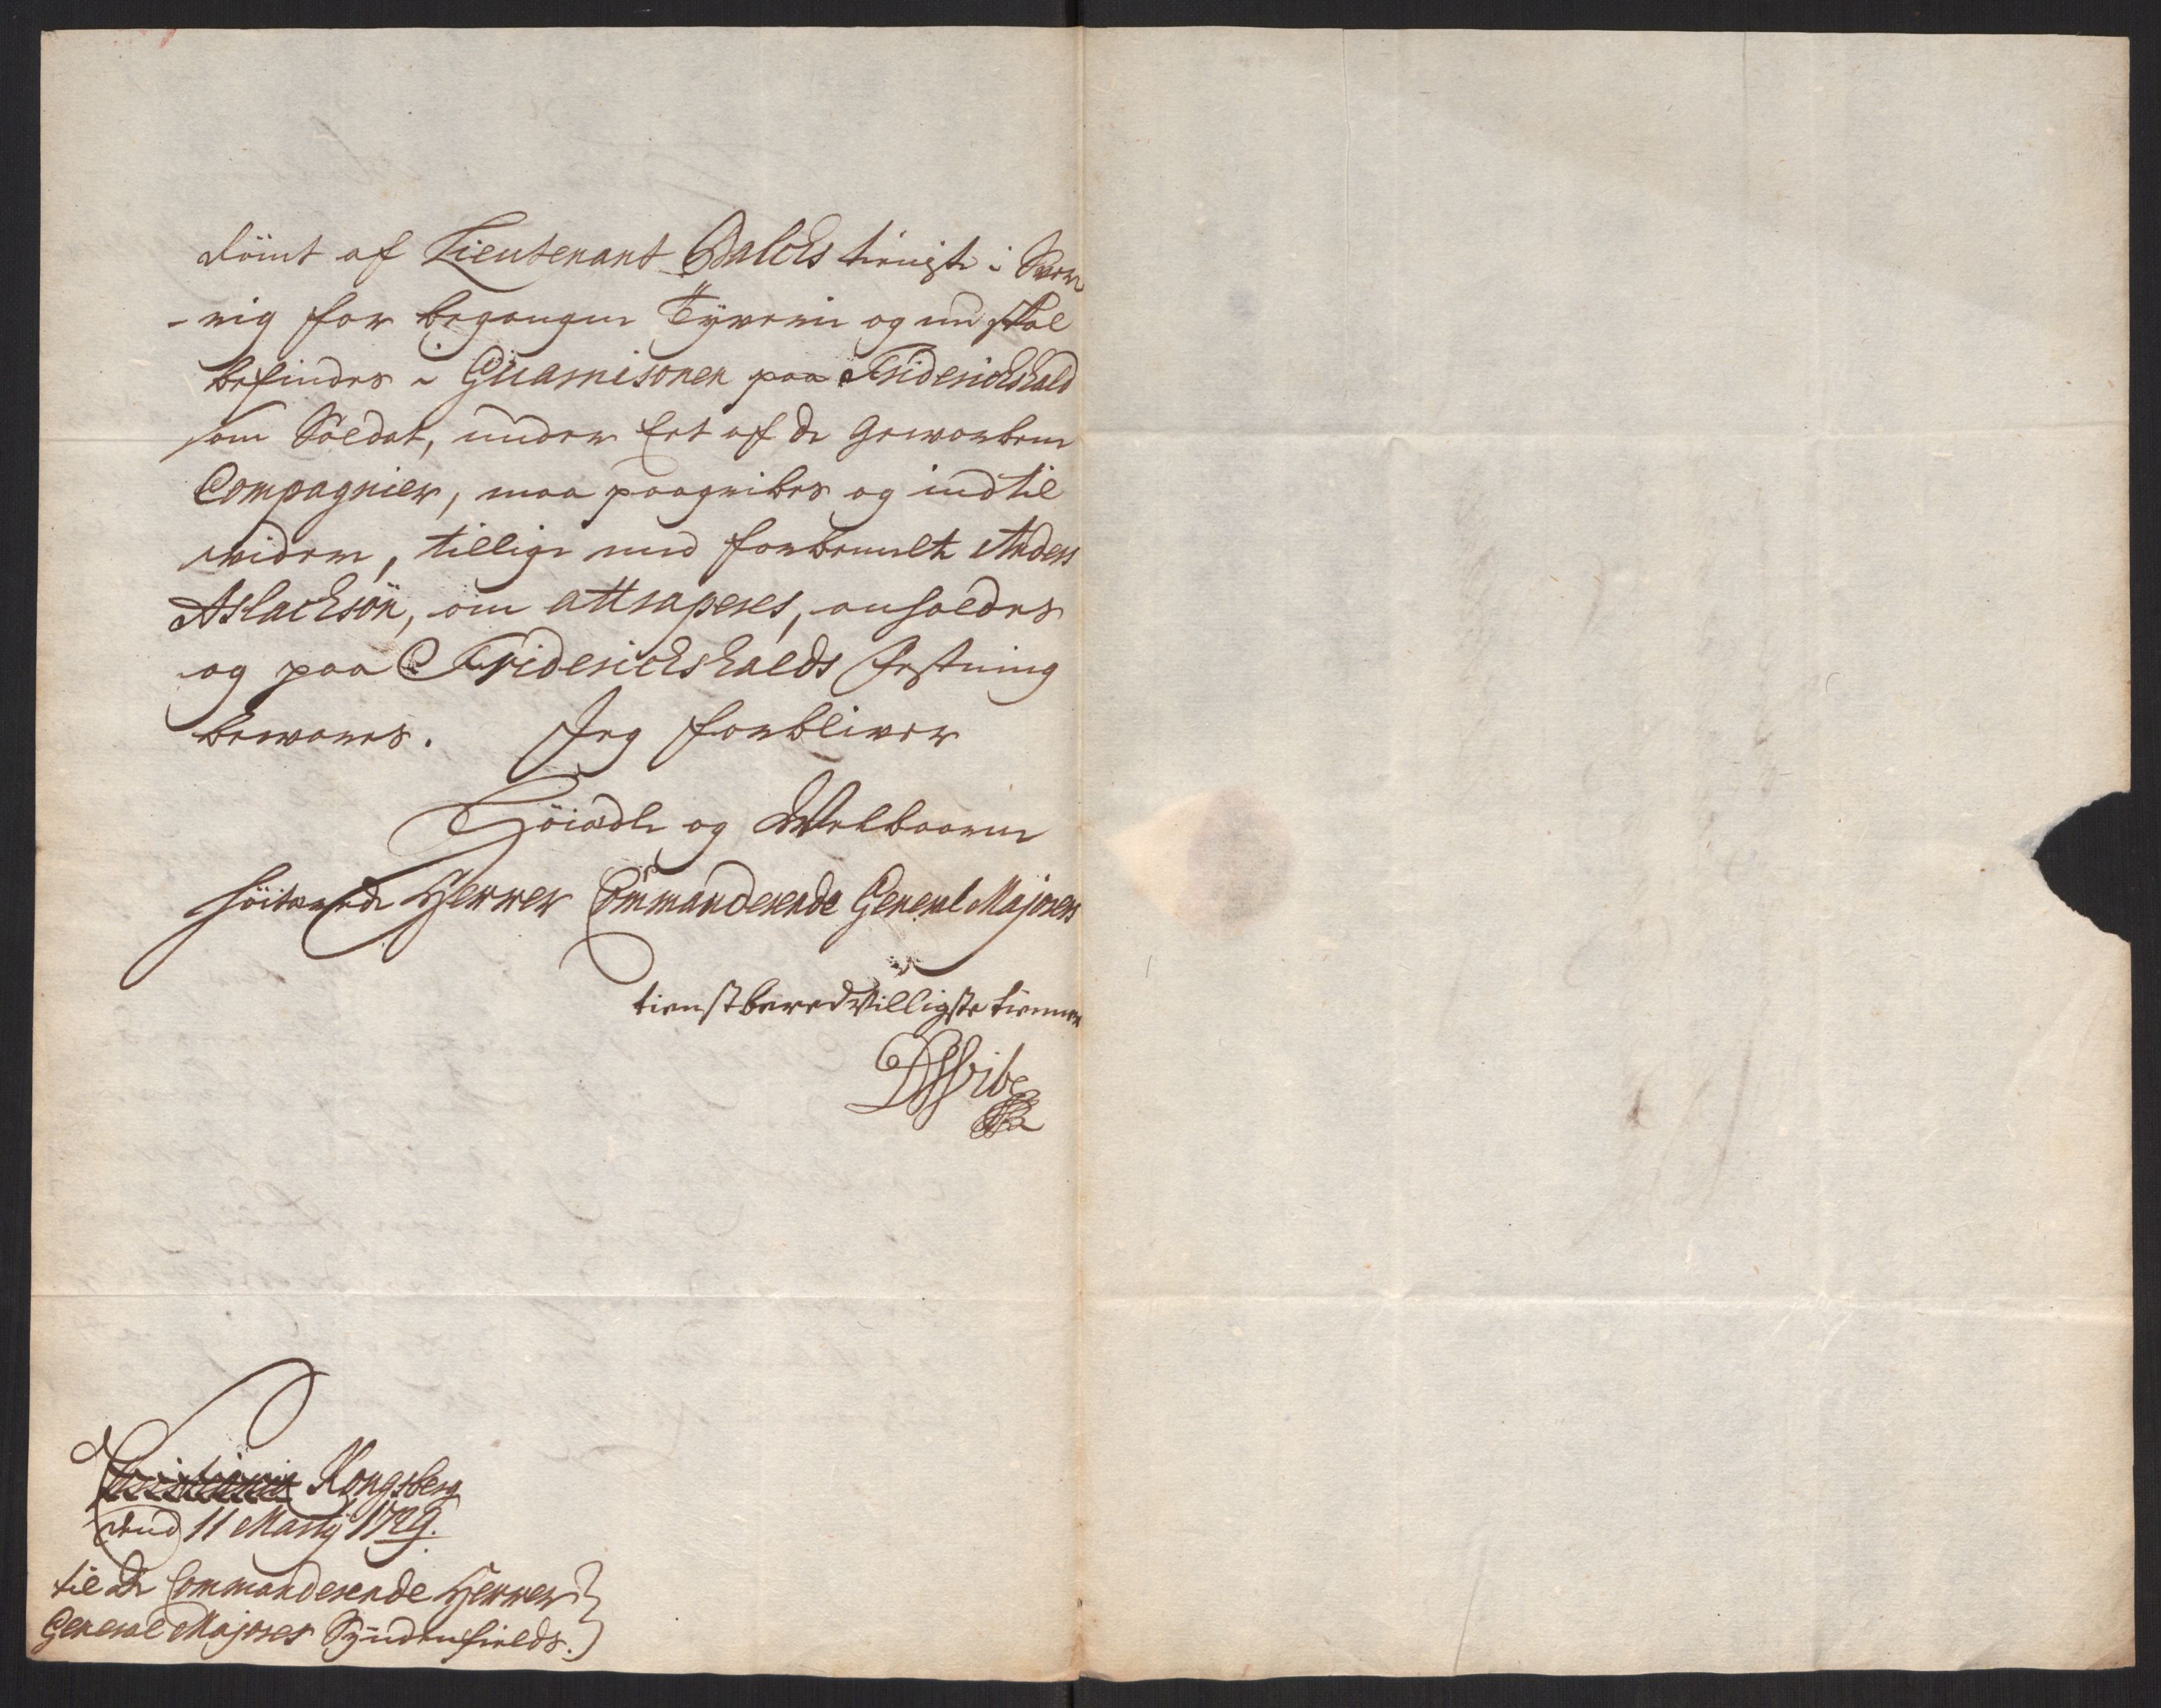 dömt af Lieutenant Balchs tieniste i Sver
-rig for begangen Tyverie og nu skal
befindes i Guarnisonen paa Friderichshald
som Soldat, under Eet af de Geworbene
Compagnier, maa paagribes og indtil
widere, tillige med forbemelte Anders
Aslachsön, om attraperes, anholdes
og paa Friderichshalds Festning
bewares. Jeg forbliver
Höiædle og Welbaarne
höitærede Herrer Commanderende General Majorers
tienstberedvilligste tienner
DVibe
Christiania Kongsberg
dend 11 Martij 1729.
til De Commanderende Herrer
General Majorer Syndenfields.